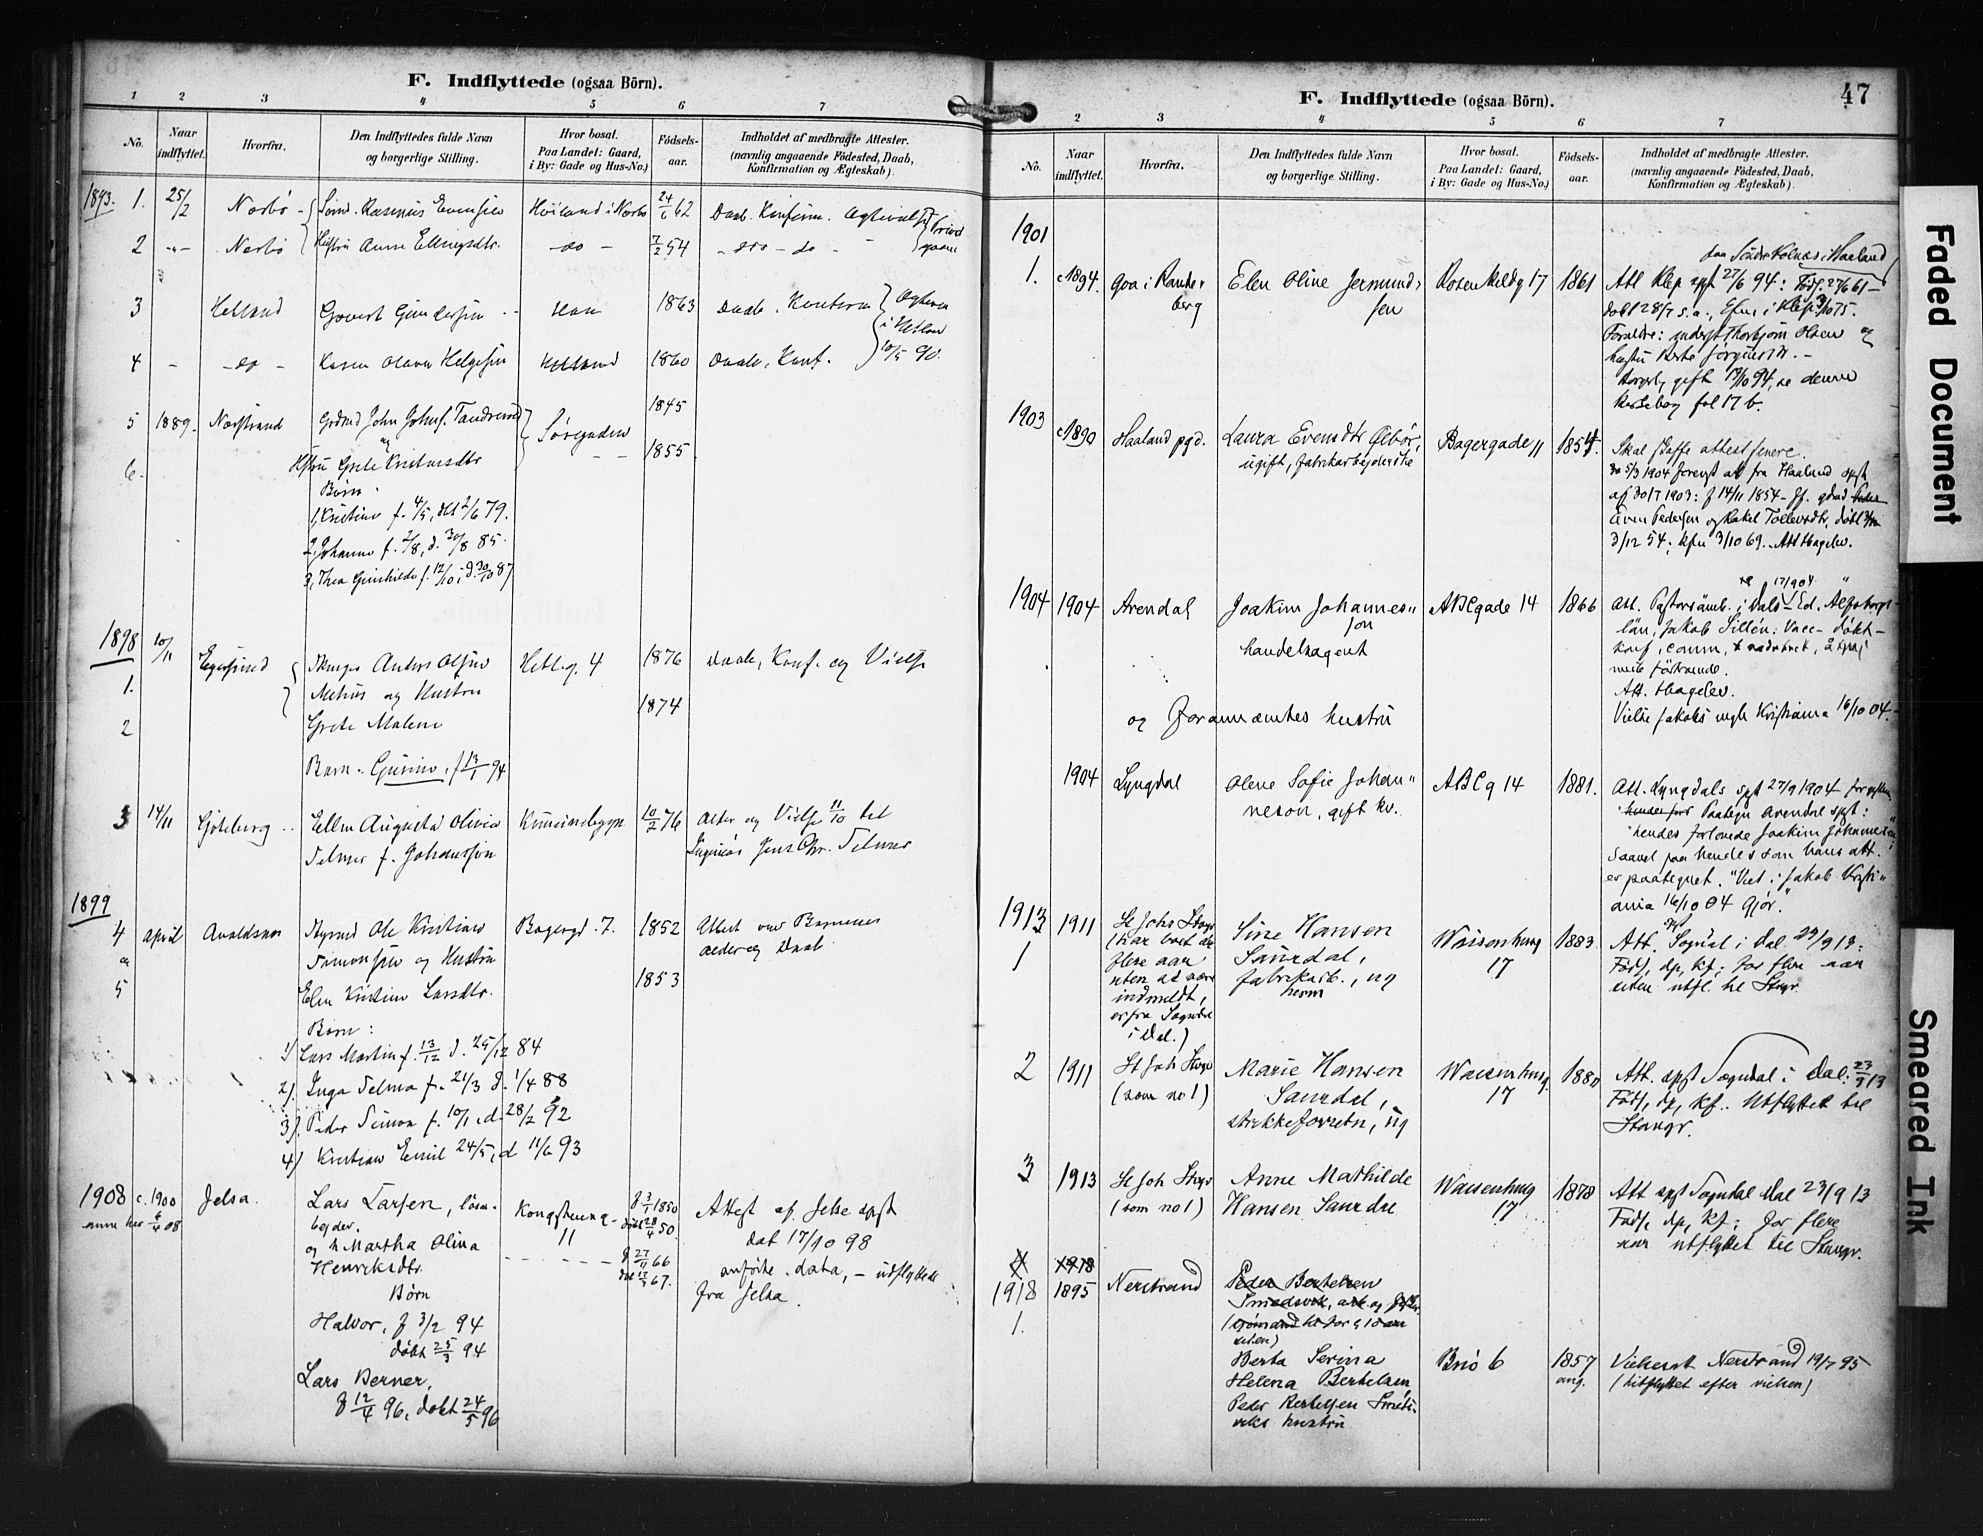 F. Indflyttede (ogsaa Börn).
1 2 3 4 5 6 7
No.
Naar indflyttet.
Hvorfra.
Den Indflyttedes fulde Navn
og borgerlige Stilling.
Hvor bosat.
Paa Landet: Gaard,
i By: Gade og Hus-No.)
Fødsels-
aar.
Indholdet af medbragte Attester.
(navnlig angaaende Födested, Daab,
Konfirmation og Ægteskab).
1893. 1. 25/2 Nærbø Rasmus Evensen Høiland i Nærbø 24/6 62 Daab. Konfirm.
2 -"- Nærbø Hustru Anne Ellingsdtr. do - 7/2 54 - do - do -
3 Hetland Govert Gundersen 1863 Daab. Konfirm
i Hetland
4 - - do - Karen Olava Helgesen Hetland 1860 Daab, Konf. 10/5 90.
5 1889. Nærstrand John Johns. Tandrevold 1845
og Sørgaden
6. Hstru Grete Kristensdtr 1855
Børn:
1, Kristine f. 4/5, dbt 2/6 79.
2, Johanne f. 2/8, d. 30/8 85.
3, Thea Gunhilde f. 12/10, d. 30/10 87
1898 10/11 Egersund Anders Olsen Hetleg. 4 1876 Daab, Konf. og Vielse
1. og Hustru
2 Grete Malene 1874
Barn. Gurine, f 13/1 94
3 14/11 Göteborg Ellen Augusta Olivia 10/2 76 Alder og Vielse 11/10
Selmer f. Johanssen Ingeniør Jens Chr. Selmer
1899
4 april Avaldsnes Styrmd Ole Kristian Bagergd. 7. 1852 Attest over Børnenes
og Simonsen og Hustru alder og Daab
5 Elen Kristine Larsdtr. 1853
Børn:
1) Lars Martin f. 13/12 d. 25/12 84
2) Inga Selma f. 21/3 d. 1/4 88
3) Peder Simon f. 10/1, d. 28/2 92
4) Kristian Emil 24/5, d 11/6 93
1908 c. 1900 Jelsa. Lars Larsen, løsar- Kongsteng- f 3/1 1850 Attest af Jelse spgt
anm her 6/4 08 bejder. 11 døbt 28/4 50. dat 17/10 98
og h. Martha Olina - - - - f 27/11 66 anførte data, - udflyttede
Henriksdtr. 67. fra Jelsa.
Børn
Halvor, f 3/2 94
døbt 25/3 94
Lars Berner,
f 12/4 96, døbt 24/5 96
F. Indflyttede (ogsaa Börn).
47
2 3 4 5 6 7
No.
Naar indflyttet.
Hvorfra.
Den Indflyttedes fulde Navn
og borgerlige Stilling.
Hvor bosat.
Paa Landet: Gaard,
i By: Gade og Hus-No.)
Fødsels-
aar.
Indholdet af medbragte Attester.
(navnlig angaaende Födested, Daab,
Konfirmation og Ægteskab).
1901
1. c1894. Goa i Rande- Elen Oline Jermund- Rosenkildg 17 1861 Att Klep spgt 27/6 94: Fød. 27/6 61 -
berg sen døbt 28/7 s.a., i Klep 75.
Forældre: Thorbjørn Olsen og
hustru Berte
gift 94, se denne
Kirkebog fol 17 b.
1903
c1890 Haaland pgd. Laura Evensdtr Ølbør, Bagergade 11 1854. Skal skaffe attest senere.
ugift, fabrikarbejderske 5/3 1904 forevist att fra Haaland spgt
af 30/7 1903: f 14/11 1854 -
Even Pedersen og Rakel Tollevsdtr, døbt
3/12 54; kfn 3/10 69. Att tbagelev.
1904 1904 Arendal Joakim Johannes- ABCgade 14 1866 Att. Pastorsämb. i Dals-Ed. Älfsborgs
son län, Jakob Sillén: Vacc- döbt -
handelsagent konf, comm,
Att. tbagelev.
og forannævntes hustru Vielse Jakobs mgh Kristiania 16/10 04.
1904 Lyngdal Olene Sofie Johan- ABCg 14 1881. Att. Lyngdals spgt 27/9 1904
neson, gift kv. Paategn Arendal spgt:
hendes forlovede Joakim Johanneson
Saavel paa hendes som hans att.
er paategnet. "Viet i Jakob Kristi-
ania 16/10 04 gjør."
1913 1911 St Johs Stvgr Sine Hansen Waisenhusg 1883. Att. spgt Sogndal i Dal. 29/9 13:
1 (har boet der Saurdal, 17 Født, dp, kf; for flere aar
flere aar fabrikarb., ug siden utfl. til Stvgr.
uten at være herm
indmeldt,
er fra Sogndal
i Dal.)
2 1911 St Joh Stvgr Marie Hansen Waisenhusg. 1880 Att. spgt Sogndal i Dal: 23/9 13
(som no 1) Saurdal, 17 Født, dp, kf.. Utflyttet til
strikkeforretn, ug Stavgr.
3 1913 St Joh Stvgr Anne Mathilde Waisenhusg 1878 Att spgt Sogndal Dal 23/9 13
(som no 1) Hansen Saurdal 17 Født, dp, kf; for flere
aar utflyttet til Stavgr.
1918
1918 1895 Nerstrand Peder Bertelsen
1. Smedsvik,
siden)
Berta Serina Briø 6 1857 Vielsesatt Nerstrand 19/7 95
Helena Bertelsen ang. (hitflyttet efter vielsen)
Peder Bertelsen Smeds-
viks hustru
Faded Document
Smeared Ink